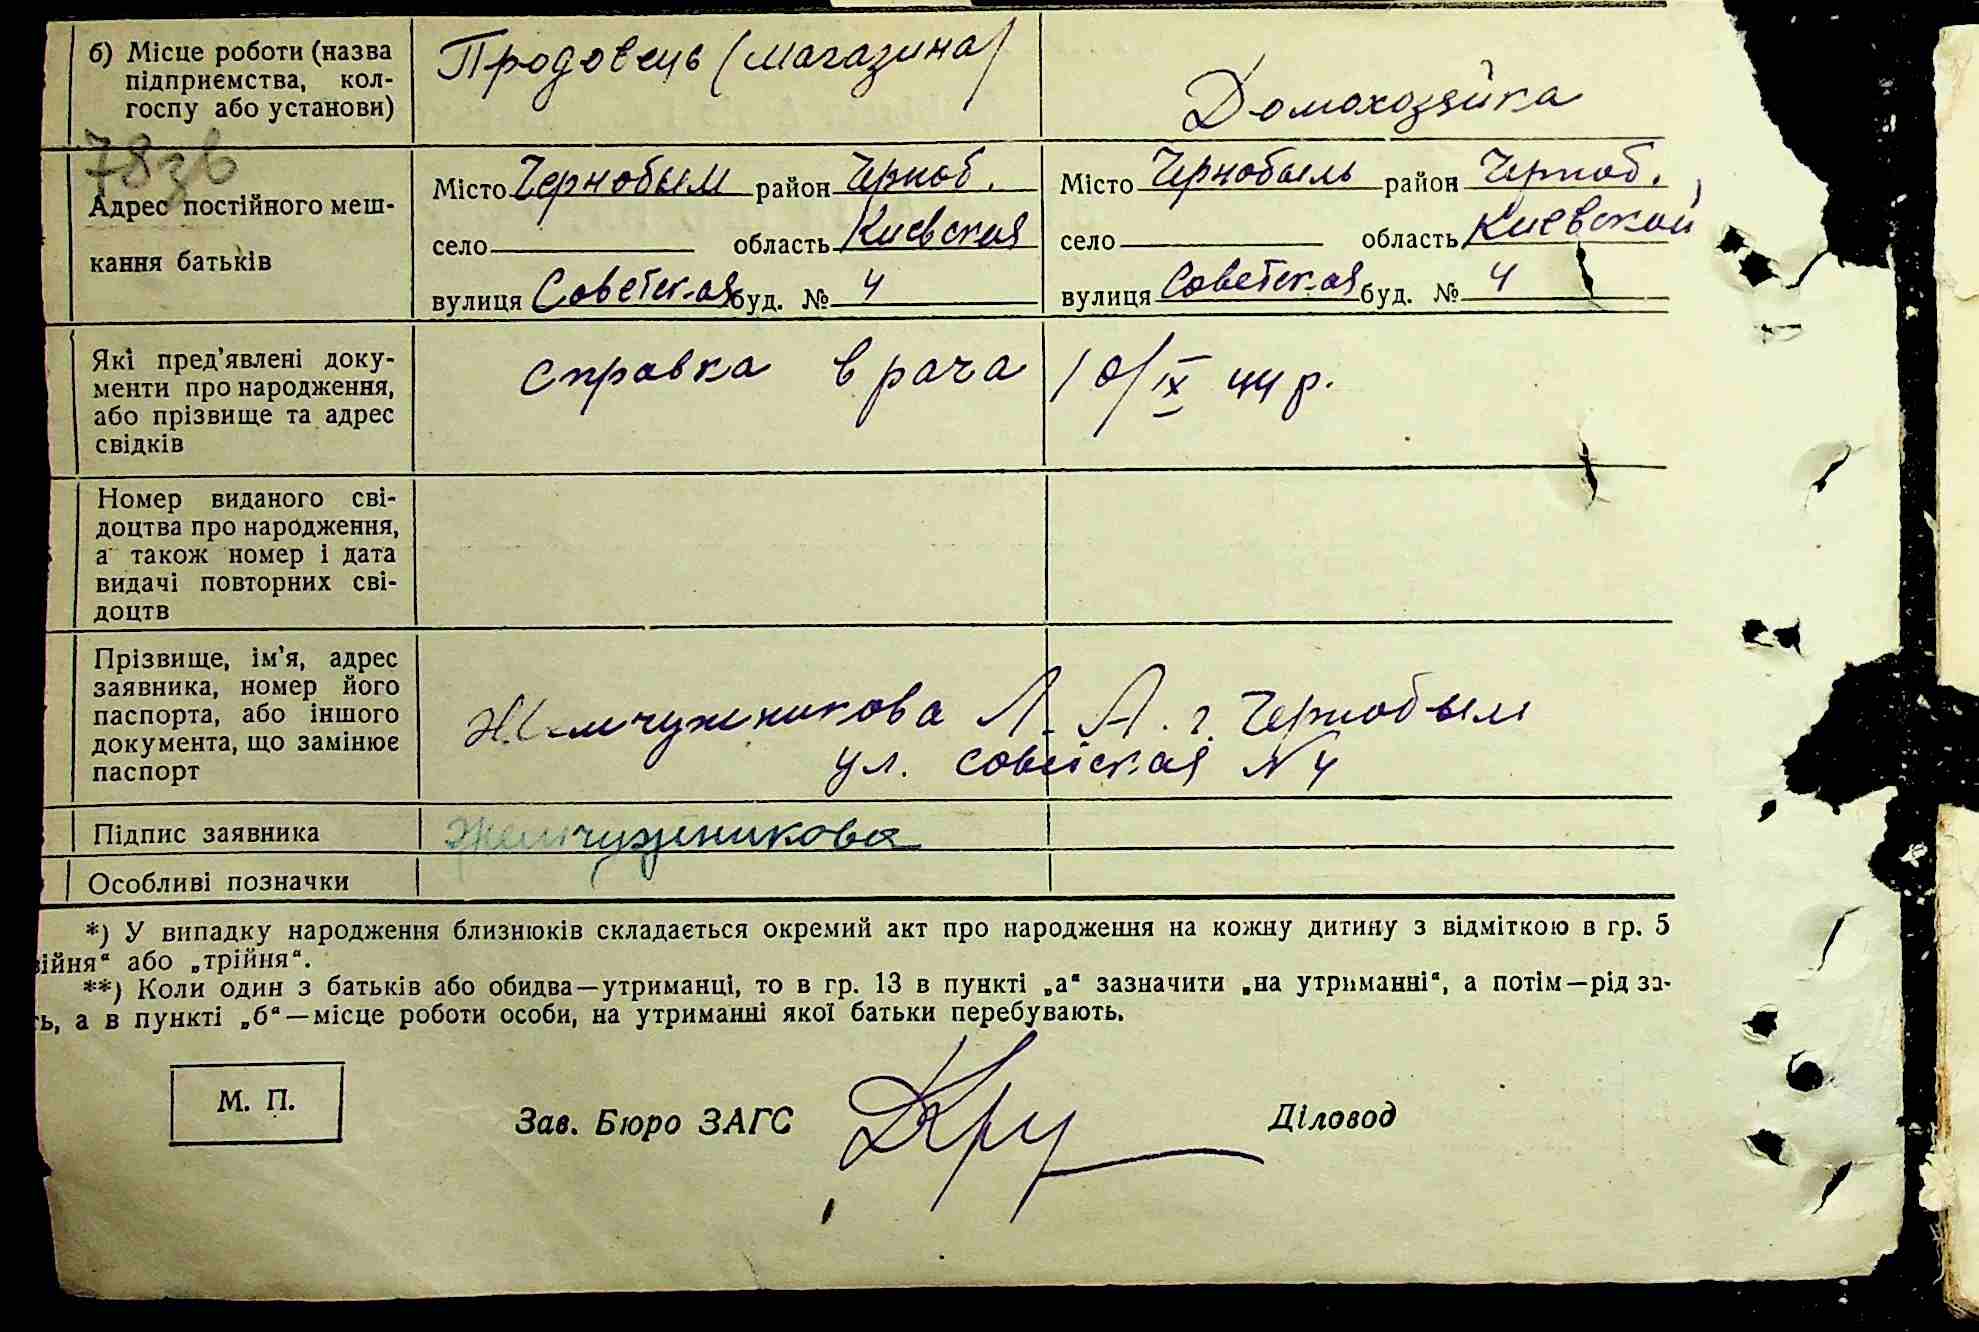 б) Місце роботи (назва
підприємства, кол-
госпу або установи)
Продовець (магазина)
Домохозяйка
78зв
Адрес постійного меш-
кання батьків
Місто Чернобыль район Черноб.
село область Киевская
вулиця Советская буд. № 4
Місто Чернобыль район Черноб.
село область Киевской
вулиця Советская буд. № 4
Які пред'явлені доку-
менти про народження,
або прізвище та адрес
свідків
справка врача 10/IX 44 р.
Номер виданого сві-
доцтва про народження,
а також номер і дата
видачі повторних сві-
доцтв
Прізвище, ім'я, адрес
заявника, номер його
паспорта, або іншого
документа, що замінює
паспорт
Жемчужникова Л. А. г. Чернобыль
ул. Советская № 4
Підпис заявника
Жемчужникова
Особливі позначки
*) У випадку народження близнюків складається окремий акт про народження на кожну дитину з відміткою в гр. 5
ійня“ або „трійня“.
**) Коли один з батьків або обидва—утриманці, то в гр. 13 в пункті „а“ зазначити „на утриманні“, а потім—рід за-
ь, а в пункті „б“—місце роботи особи, на утриманні якої батьки перебувають.
М. П.
Зав. Бюро ЗАГС
Діловод